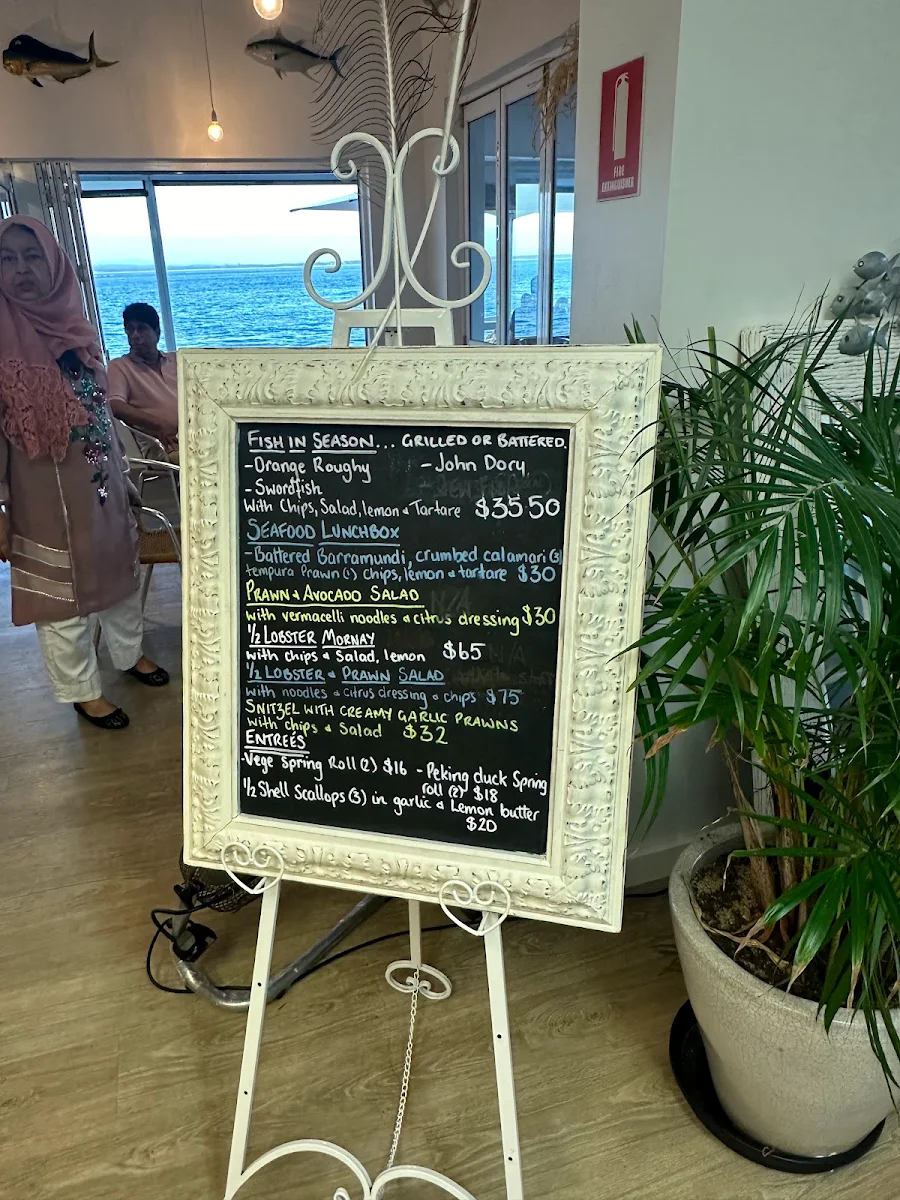 FIRE
EXTINGUISHER
FISH IN SEASON... GRILLED OR BATTERED.
-Orange Roughy -John Dory,
- Swordfish
with Chips, Salad, lemon & Tartare $35.50
SEAFOOD LUNCHBOX
-Battered Barramundi, crumbed calamari (3)
tempura Prawn (1) chips, lemon & tartare $30
PRAWN & AVOCADO SALAD
with vermacelli noodles & citrus dressing $30
1/2 LOBSTER MORNAY
with chips & Salad, lemon $65
1/2 LOBSTER & PRAWN SALAD
with noodles & citrus dressing & chips $75
SNITZEL WITH CREAMY GARLIC PRAWNS
with chips & Salad $32
ENTREES
-Vege Spring Roll (2) $16 - Peking duck Spring
roll (2) $18
1/2 Shell Scallops (3) in garlic & Lemon butter
$20